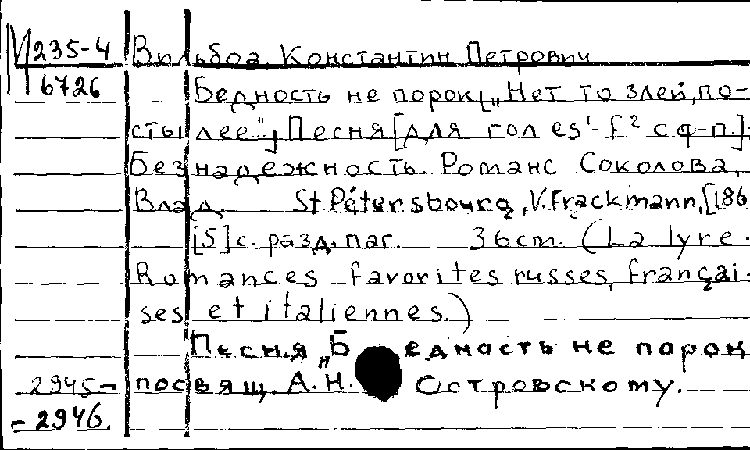 М 235-4 Вильбоа Константин Петрович
6726 Бедность не порок[„Нет то злей, по-
стылее"] Песня [для гол es'-f² с ф-п.].
Безнадежность. Романс Соколова,
Влад. St Pétersbourg, V. Frackmann, [186
[5] с. разд. паг. 36 cm. (La lyre.
Romances favorites russes, françai-
ses et italiennes.)
Песня „Бедность не порок
2945- посвящ. А.Н. Островскому.
-2946.